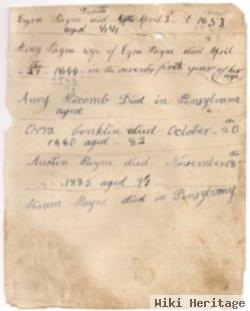 Death
Ezra Payne died April 3 1853
aged
Payne wife of Ezra Payne died April
27 1844 in the seventy fifth year of her age
Amy Slocomb Died in Pensylvana
aged
Orra Conklin died October 20
1880 aged 82
Austin Payne died November 18th
1885 aged
Hiram Payne died in Pensylvany
Wiki Heritage